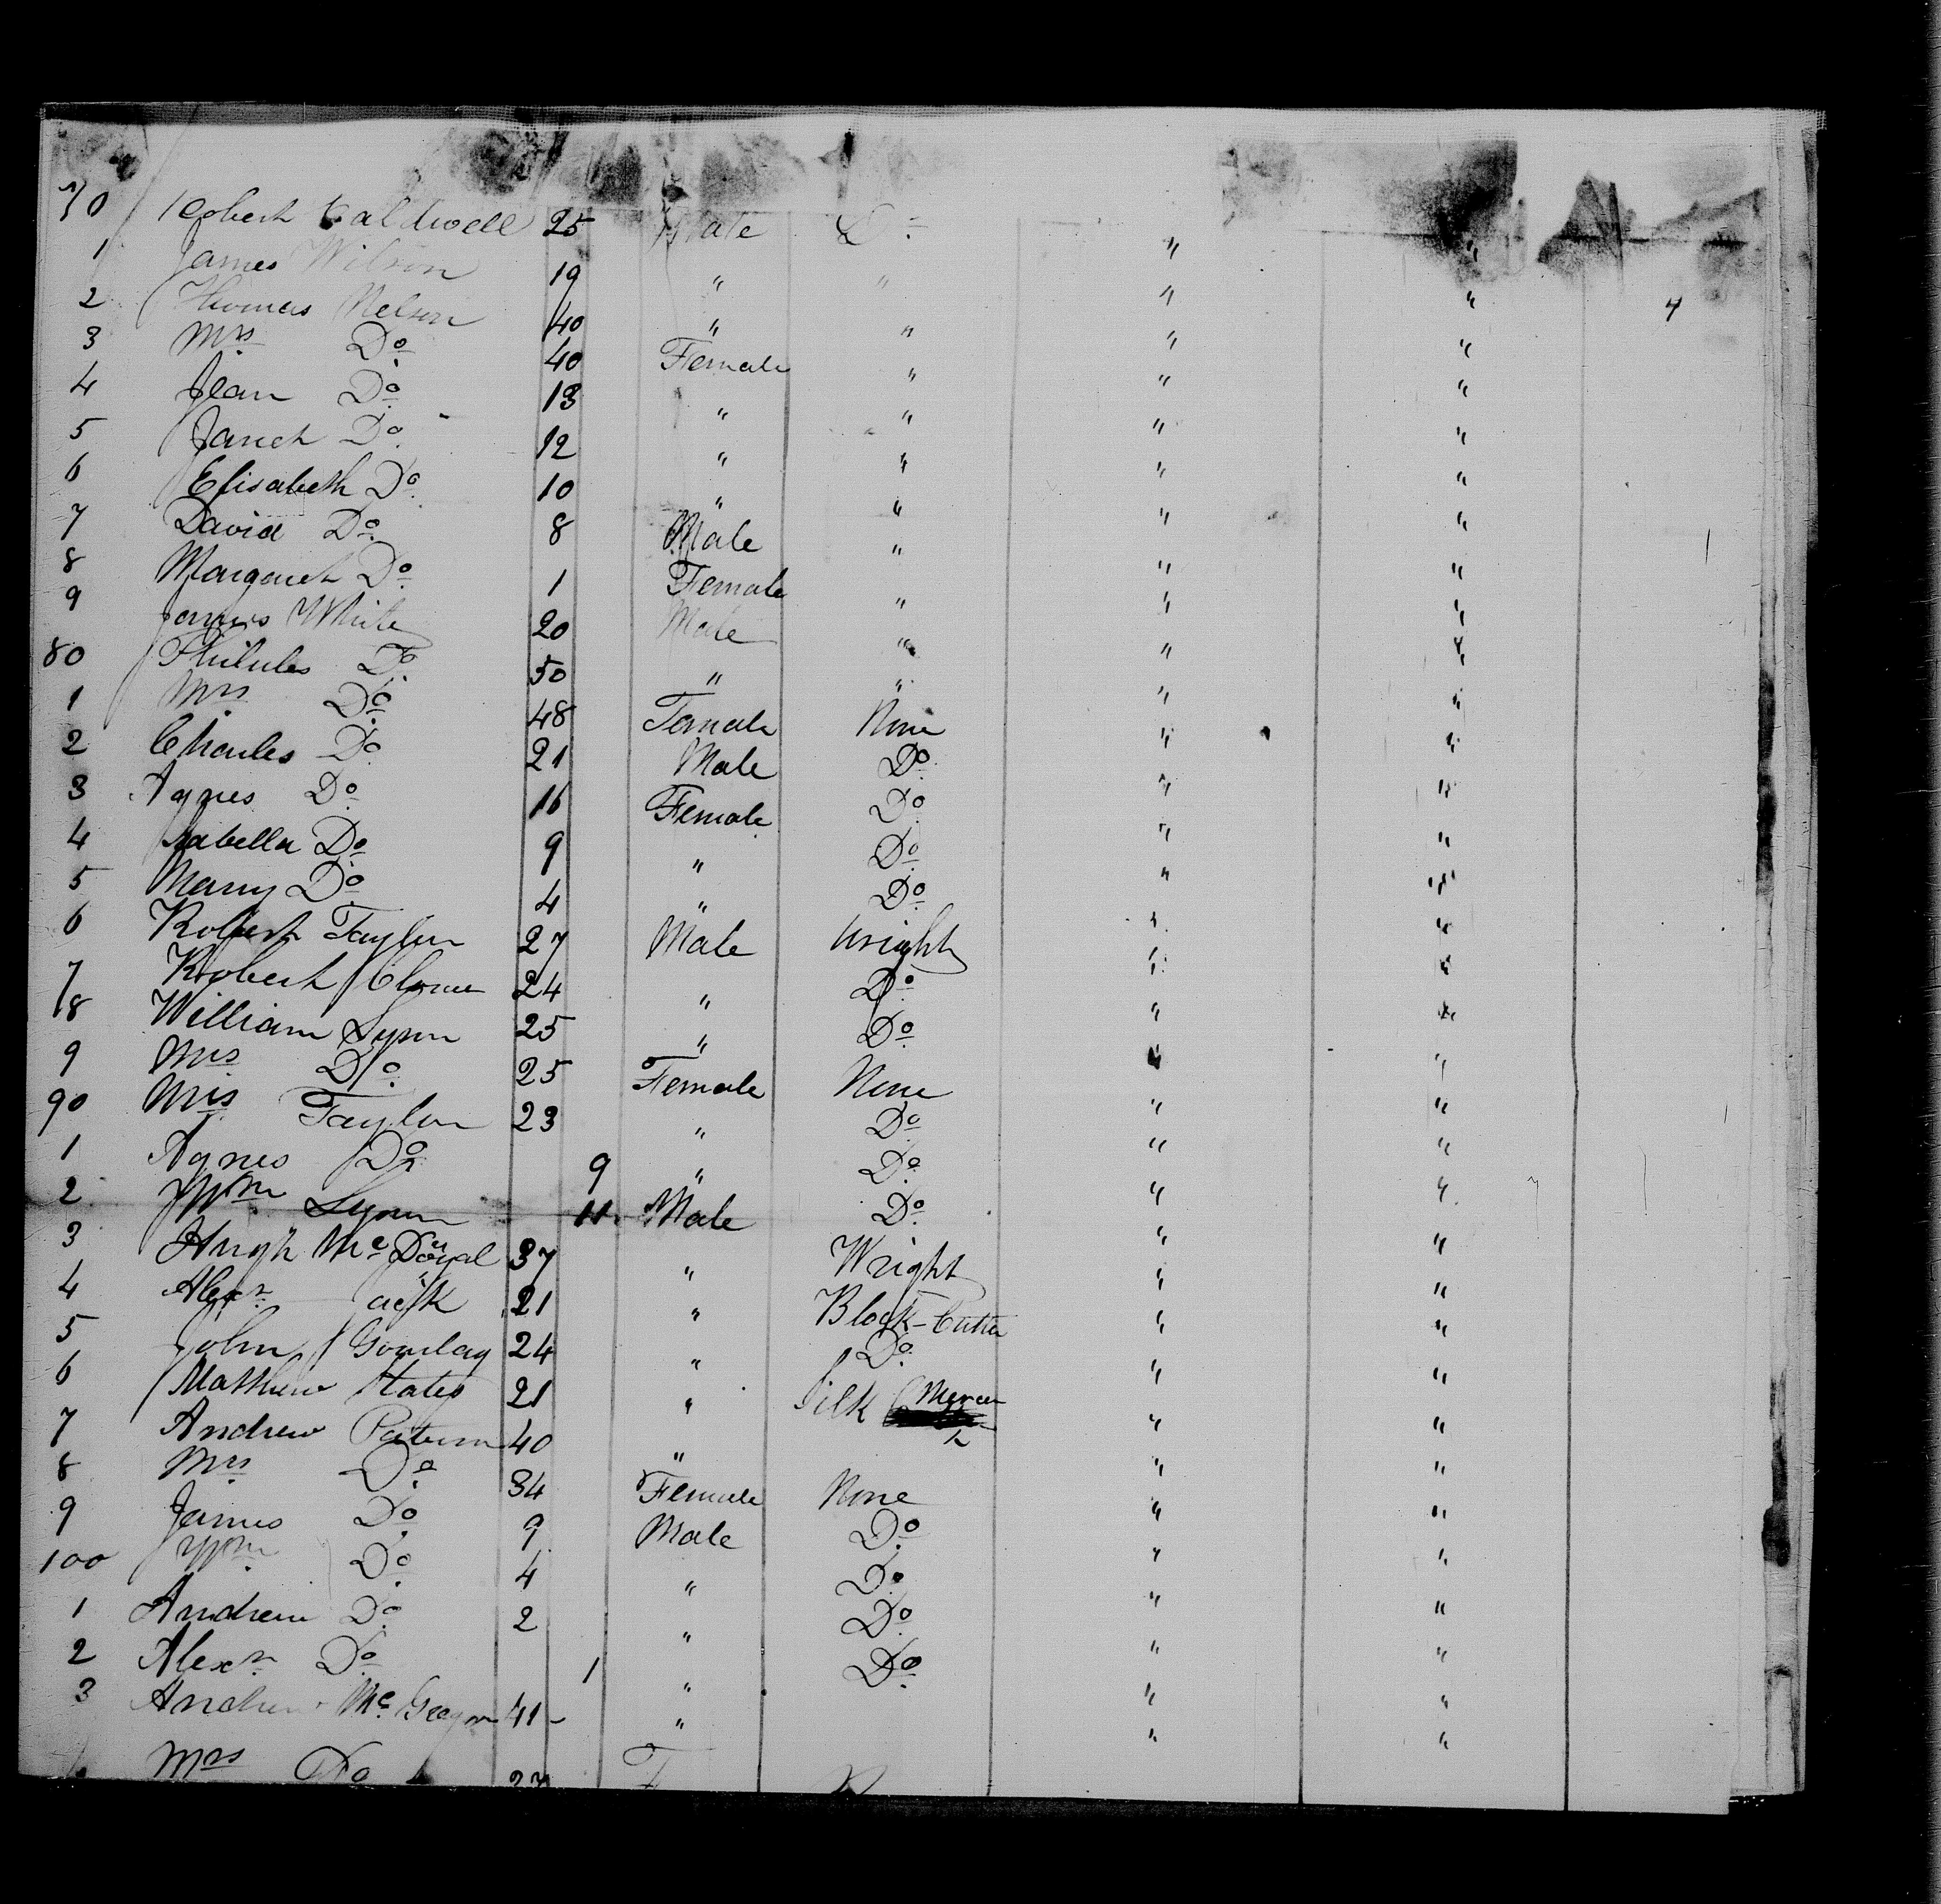 70 Robert Caldwell 25 Male Do " "
1 James Wilson 19 " " " "
2 Thomas Nelson 40 " " " "
3 Mrs Do 40 Female " " "
4 Jean Do 13 " " " "
5 Janet Do 12 " " " "
6 Elisabeth Do 10 " " " "
7 David Do 8 Male " " "
8 Margaret Do 1 Female " " "
9 James White 20 Male " " "
80 Do 50 " " " "
1 Mrs Do 48 Female None " "
2 Charles Do 21 Male Do " "
3 Agnes Do 16 Female Do " "
4 Isabella Do 9 " Do " "
5 Mary Do 4 " Do " "
6 Robert Taylor 27 Male Wright " "
7 Robert 24 " Do " "
8 William Lynn 25 " Do " "
9 Mrs Do 25 Female None " "
90 Mrs Taylor 23 " Do " "
1 Agnes Do 9 " Do " "
2 Wm Lynn 11 Male Do " "
3 Hugh Mc Dougal 37 " Wright " "
4 Alexr 21 " Block-Cutter " "
5 John Gourlay 24 " Do " "
6 Mathew 21 " Silk Mercer " "
7 Andrew Paterson 40 " " "
8 Mrs Do 34 Female None " "
9 James Do 9 Male Do " "
100 Wm Do 4 " Do " "
1 Andrew Do 2 " Do " "
2 Alexr Do 1 " Do " "
3 Andrew Mc Gregor 41 " " "
Mrs Do